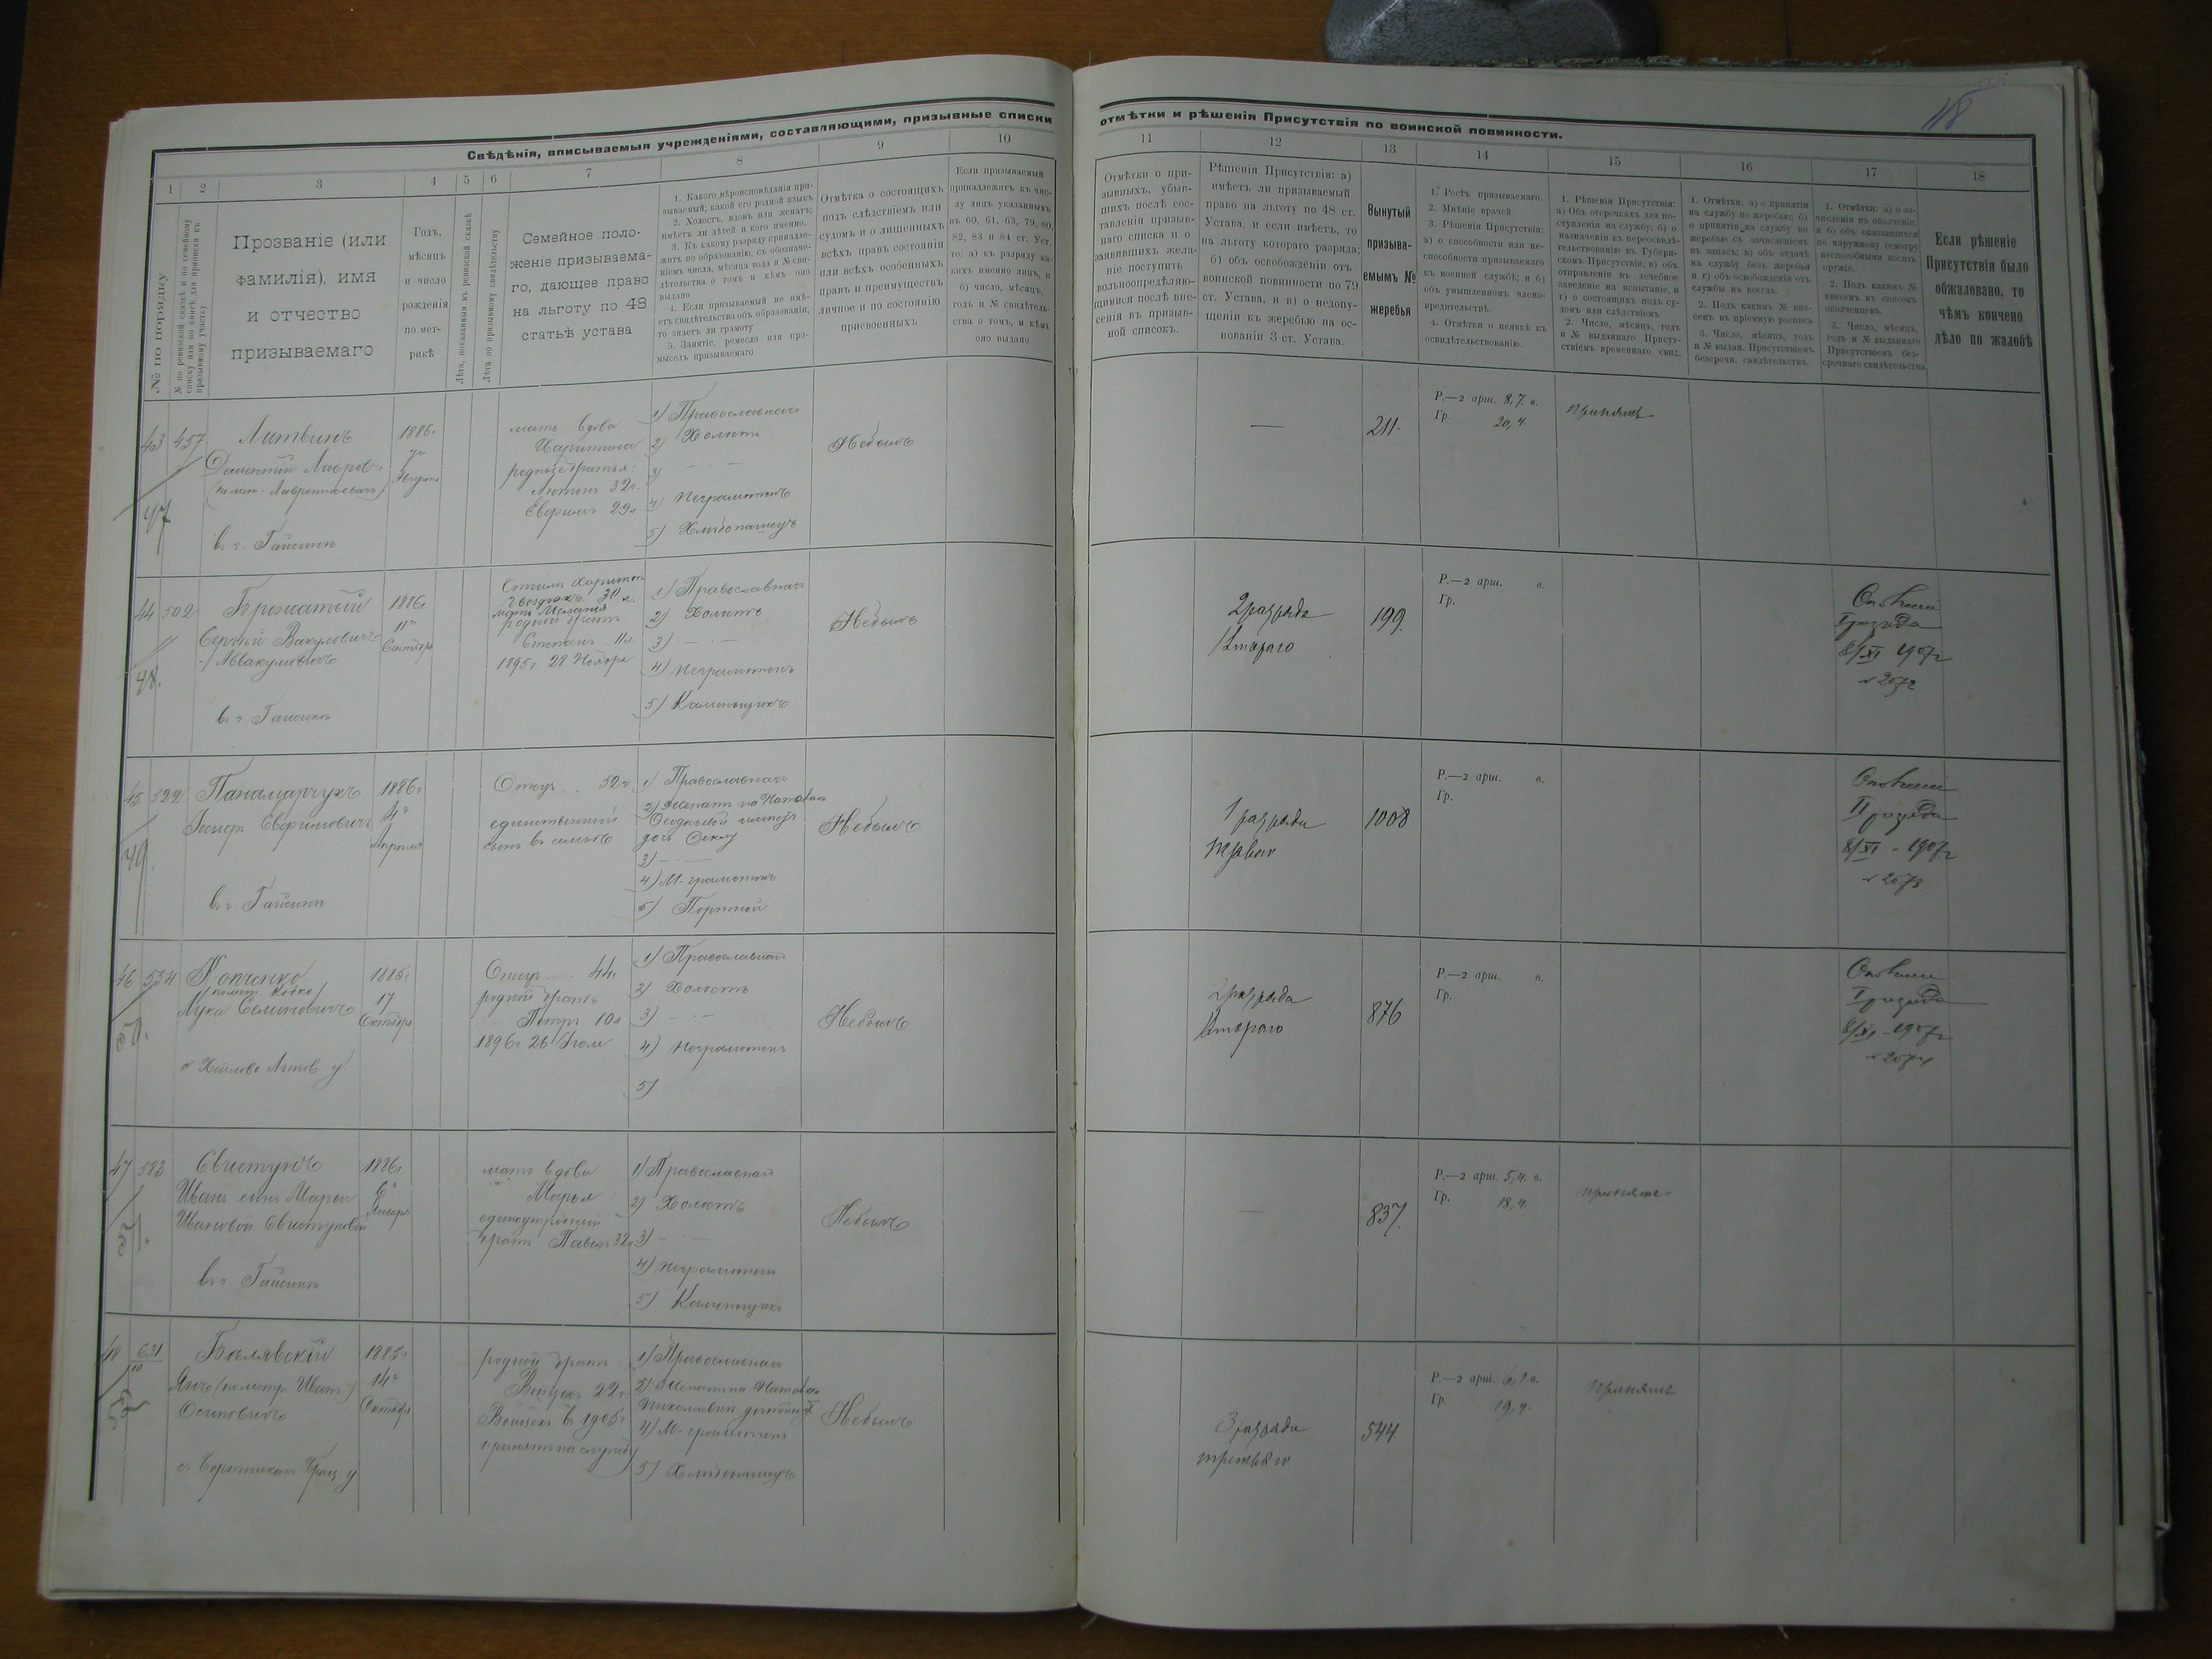 118
Свѣдѣнія, вписываемыя учрежденіями, составляющими, призывные списки
отмѣтки и рѣшенія Присутствія по воинской повинности.
1 2 3 4 5 6 7 8 9 10
11 12 13 14 15 16 17 18
№ по порядку
№ по ревизской сказкѣ и по семейному
списку или по книгѣ для приписки къ
призывному участку
Прозваніе (или
фамилія), имя
и отчество
призываемаго
Годъ,
мѣсяцъ
и число
рожденія
по мет-
рикѣ
Лѣта, показанныя въ ревизской сказкѣ
Лѣта по призывному свидѣтельству
Семейное поло-
женіе призываема-
го, дающее право
на льготу по 48
статьѣ устава
1. Какого вѣроисповѣданія при-
зываемый; какой его родной языкъ
2. Холостъ, вдовъ или женатъ;
имѣетъ ли дѣтей и кого именно.
3. Къ какому разряду принадле-
житъ по образованію, съ обозначе-
ніемъ числа, мѣсяца года и № сви-
дѣтельства о томъ и кѣмъ оно
выдано
4. Если призываемый не имѣ-
етъ свидѣтельства объ образованіи,
то знаетъ ли грамоту
5. Занятіе, ремесло или про-
мыселъ призываемаго
Отмѣтка о состоящихъ
подъ слѣдствіемъ или
судомъ и о лишенныхъ
всѣхъ правъ состоянія
или всѣхъ особенныхъ
правъ и преимуществъ
лично и по состоянію
присвоенныхъ
Если призываемый
принадлежитъ къ чис-
лу лицъ указанныхъ
въ 60, 61, 63, 79, 80,
82, 83 и 84 ст. Уст.
то: а) къ разряду ка-
кихъ именно лицъ, и
б) число, мѣсяцъ,
годъ и № свидѣтель-
ства о томъ, и кѣмъ
оно выдано
Отмѣтки о при-
зывныхъ, убыв-
шихъ послѣ сос-
тавленія призыв-
наго списка и о
заявившихъ жела-
ніе поступить
вольноопредѣляю-
щимися послѣ вне-
сенія въ призыв-
ной списокъ.
Рѣшенія Присутствія: а)
имѣетъ ли призываемый
право на льготу по 48 ст.
Устава, и если имѣетъ, то
на льготу котораго разряда;
б) объ освобожденіи отъ
воинской повинности по 79
ст. Устава, и в) о недопу-
щеніи къ жеребью на ос-
нованіи 3 ст. Устава.
Вынутый
призыва-
емымъ №
жеребья
1. Ростъ призываемаго.
2. Мнѣніе врачей
3. Рѣшенія Присутствія:
а) о способности или не-
способности призываемаго
къ военной службѣ; и б)
объ умышленномъ члено-
вредительствѣ.
4. Отмѣтки о неявкѣ къ
освидѣтельствованію.
1. Рѣшенія Присутствія:
а) Объ отсрочкахъ для по-
ступленія на службу; б) о
назначеніи къ переосвидѣ-
тельствованію въ Губерн-
скомъ Присутствіи; в) объ
отправленіи въ лечебное
заведеніе на испытаніе, и
г) о состоящихъ подъ су-
домъ или слѣдствіемъ
2. Число, мѣсяцъ, годъ
и № выданнаго Присут-
ствіемъ временнаго свид.
1. Отмѣтки: а) о принятіи
на службу по жеребью; б)
о принятіи на службу по
жеребью съ зачисленіемъ
въ запасъ; в) объ отдачѣ
на службу безъ жеребья
и г) объ освобожденіи отъ
службы на всегда.
2. Подъ какимъ № вне-
сенъ въ пріемную роспись
3. Число, мѣсяцъ, годъ
и № выдан. Присутствіемъ
безсрочн. свидѣтельства.
1. Отмѣтки: а) о за-
численіи въ ополченіе,
и б) объ оказавшихся
по наружному осмотру
неспособными носить
оружіе.
2. Подъ какимъ №
внесенъ въ списокъ
ополченцевъ.
3. Число, мѣсяцъ,
годъ и № выданнаго
Присутствіемъ без-
срочнаго свидѣтельства
Если рѣшеніе
Присутствія было
обжаловано, то
чѣмъ кончено
дѣло по жалобѣ
43 457
47
Литвинъ
въ г. Гайсинѣ
1886г
7го
Августа
мать вдова
Харитина
родные братья:
Антонъ 32л.
Ефримъ 29л
1) Православнаго
2) Холостъ
3) — · —
4) Неграмотенъ
5) Хлѣбопашецъ
Небылъ
—
211.
Р.—2 арш. 8,7. в.
Гр. 20,4.
принятъ
44 502
48.
Сергѣй Вакуловичъ
Аввакумовичъ
въ г. Гайсинѣ
1886г
11го
Сентября
Отчимъ Харитонъ
30 л.
мать Меланія
родной братъ
Степанъ 11л.
1895г. 28 Ноября
1) Православнаго
2) Холостъ
3) — · —
4) Неграмотенъ
5) Каменьщикъ
Небылъ
2 разряда
Втораго
199.
Р.—2 арш. в.
Гр.
I разряда
8/XI 1907г
№ 2572
45 522
49.
Панамарчукъ
Іосифъ Ефримовичъ
въ г. Гайсинѣ
1886г
4го
Апрѣля
Отецъ 52г.
единственный
сынъ въ семьѣ
1) Православнаго
дочь Оеклу
3) — · —
4) М-грамотенъ
5) Портной
Небылъ
1 разряда
перваго
1008
Р.—2 арш. в.
Гр.
II разряда
8/XI - 1907г
№ 2573
46 554
50.
Лука Семеновичъ
1885г
17
Октября
Отецъ 44г
родной братъ
Петръ 10л
1896г. 26 Іюля
1) Православный
2) Холостъ
3) — · —
4) Неграмотенъ
5)
Небылъ
2 разряда
Втораго
876
Р.—2 арш. в.
Гр.
I разряда
8/XI - 1907г
№ 2574
47 583
51.
Свистунъ
Иванъ сынъ Марьи
Ивановой Свистуновой
въ г. Гайсинѣ
1886г
6го
Января
мать вдова
Марья
единоутробный
братъ Павелъ 32г
1) Православный
2) Холостъ
3) — · —
4) Неграмотенъ
5) Каменщикъ
Небылъ
—
837.
Р.—2 арш. 5,4. в.
Гр. 18,4.
принятъ
48 631/10
52
Бѣлявскій
Янъ (по метр. Иванъ)
Осиповичъ
14го
Октября
родной братъ
22г.
въ 1905г
принятъ на службу
1) Православнаго
4) М-грамотенъ
5) Хлѣбопашецъ
Небылъ
3 разряда
третьяго
544.
Р.—2 арш. 6,1 в.
Гр. 19,4.
принятъ